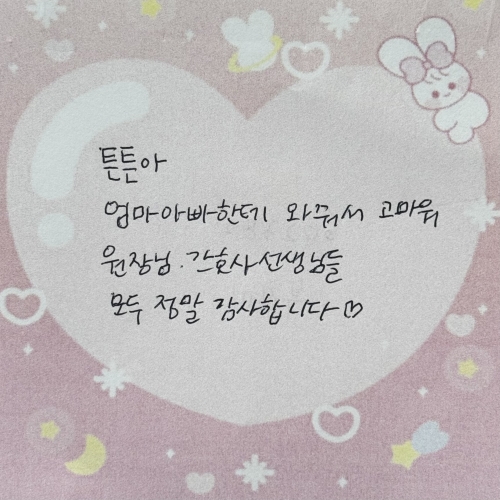 튼튼아
엄마아빠한테 와줘서 고마워
원장님·간호사선생님들
모두 정말 감사합니다♡